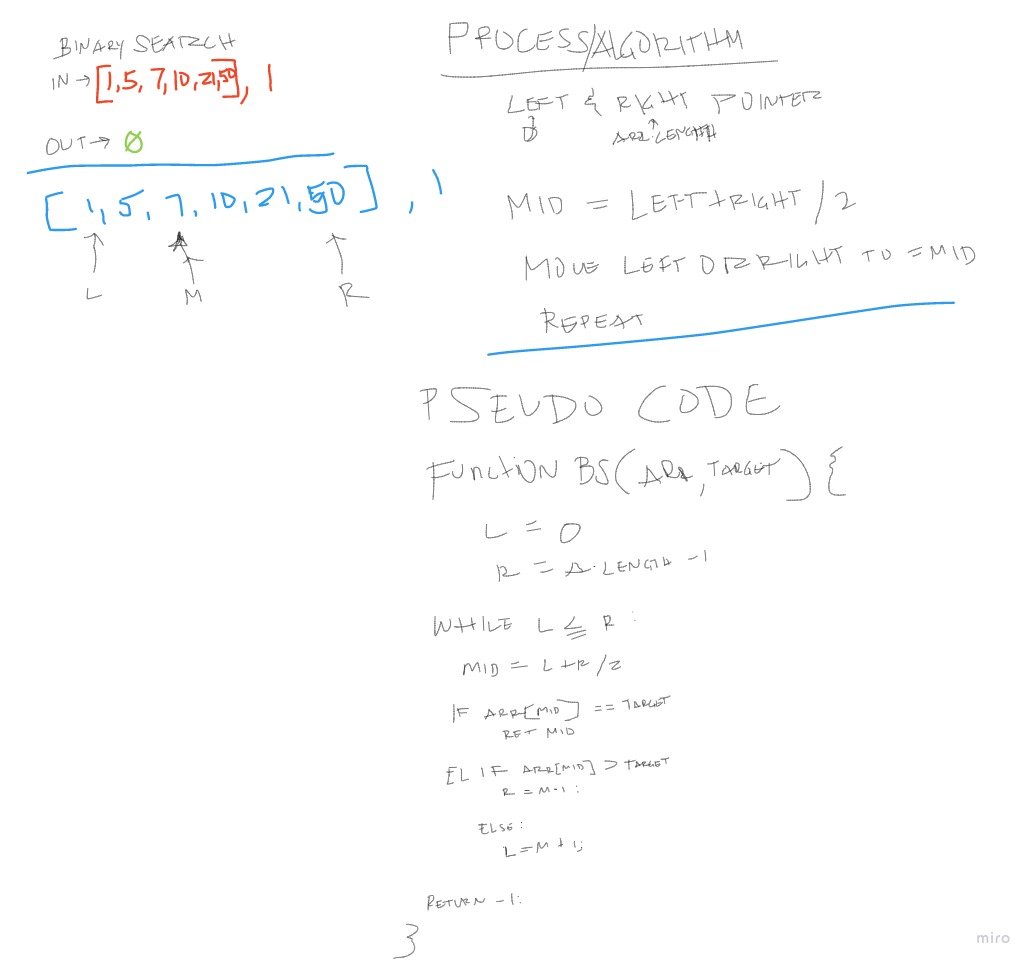 BINARY SEARCH
IN → [1,5,7,10,21,50], 1
OUT → 0
[1,5,7,10,21,50], 1
L M R
PROCESS/ALGORITHM
LEFT & RIGHT POINTER
0 ARR.LENGTH
MID = LEFT+RIGHT/2
MOVE LEFT OR RIGHT TO = MID
REPEAT
PSEUDO CODE
FUNCTION BS(ARR, TARGET) {
L = 0
R = A.LENGTH -1
WHILE L ≤ R :
MID = L+R/2
IF ARR[MID] == TARGET
RET MID
EL IF ARR[MID] > TARGET
R = M-1;
ELSE:
L = M + 1;
RETURN -1;
}
miro